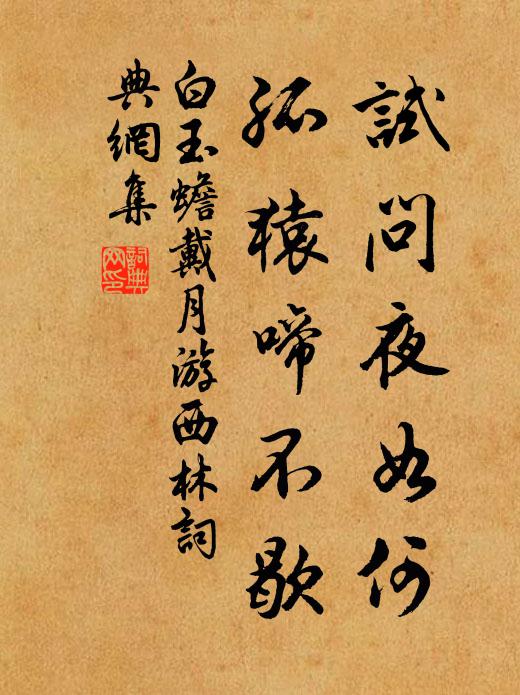 試問夜如何
孤猿啼不歇
白玉蟾戴月游西林詞
典網集
詞典網印